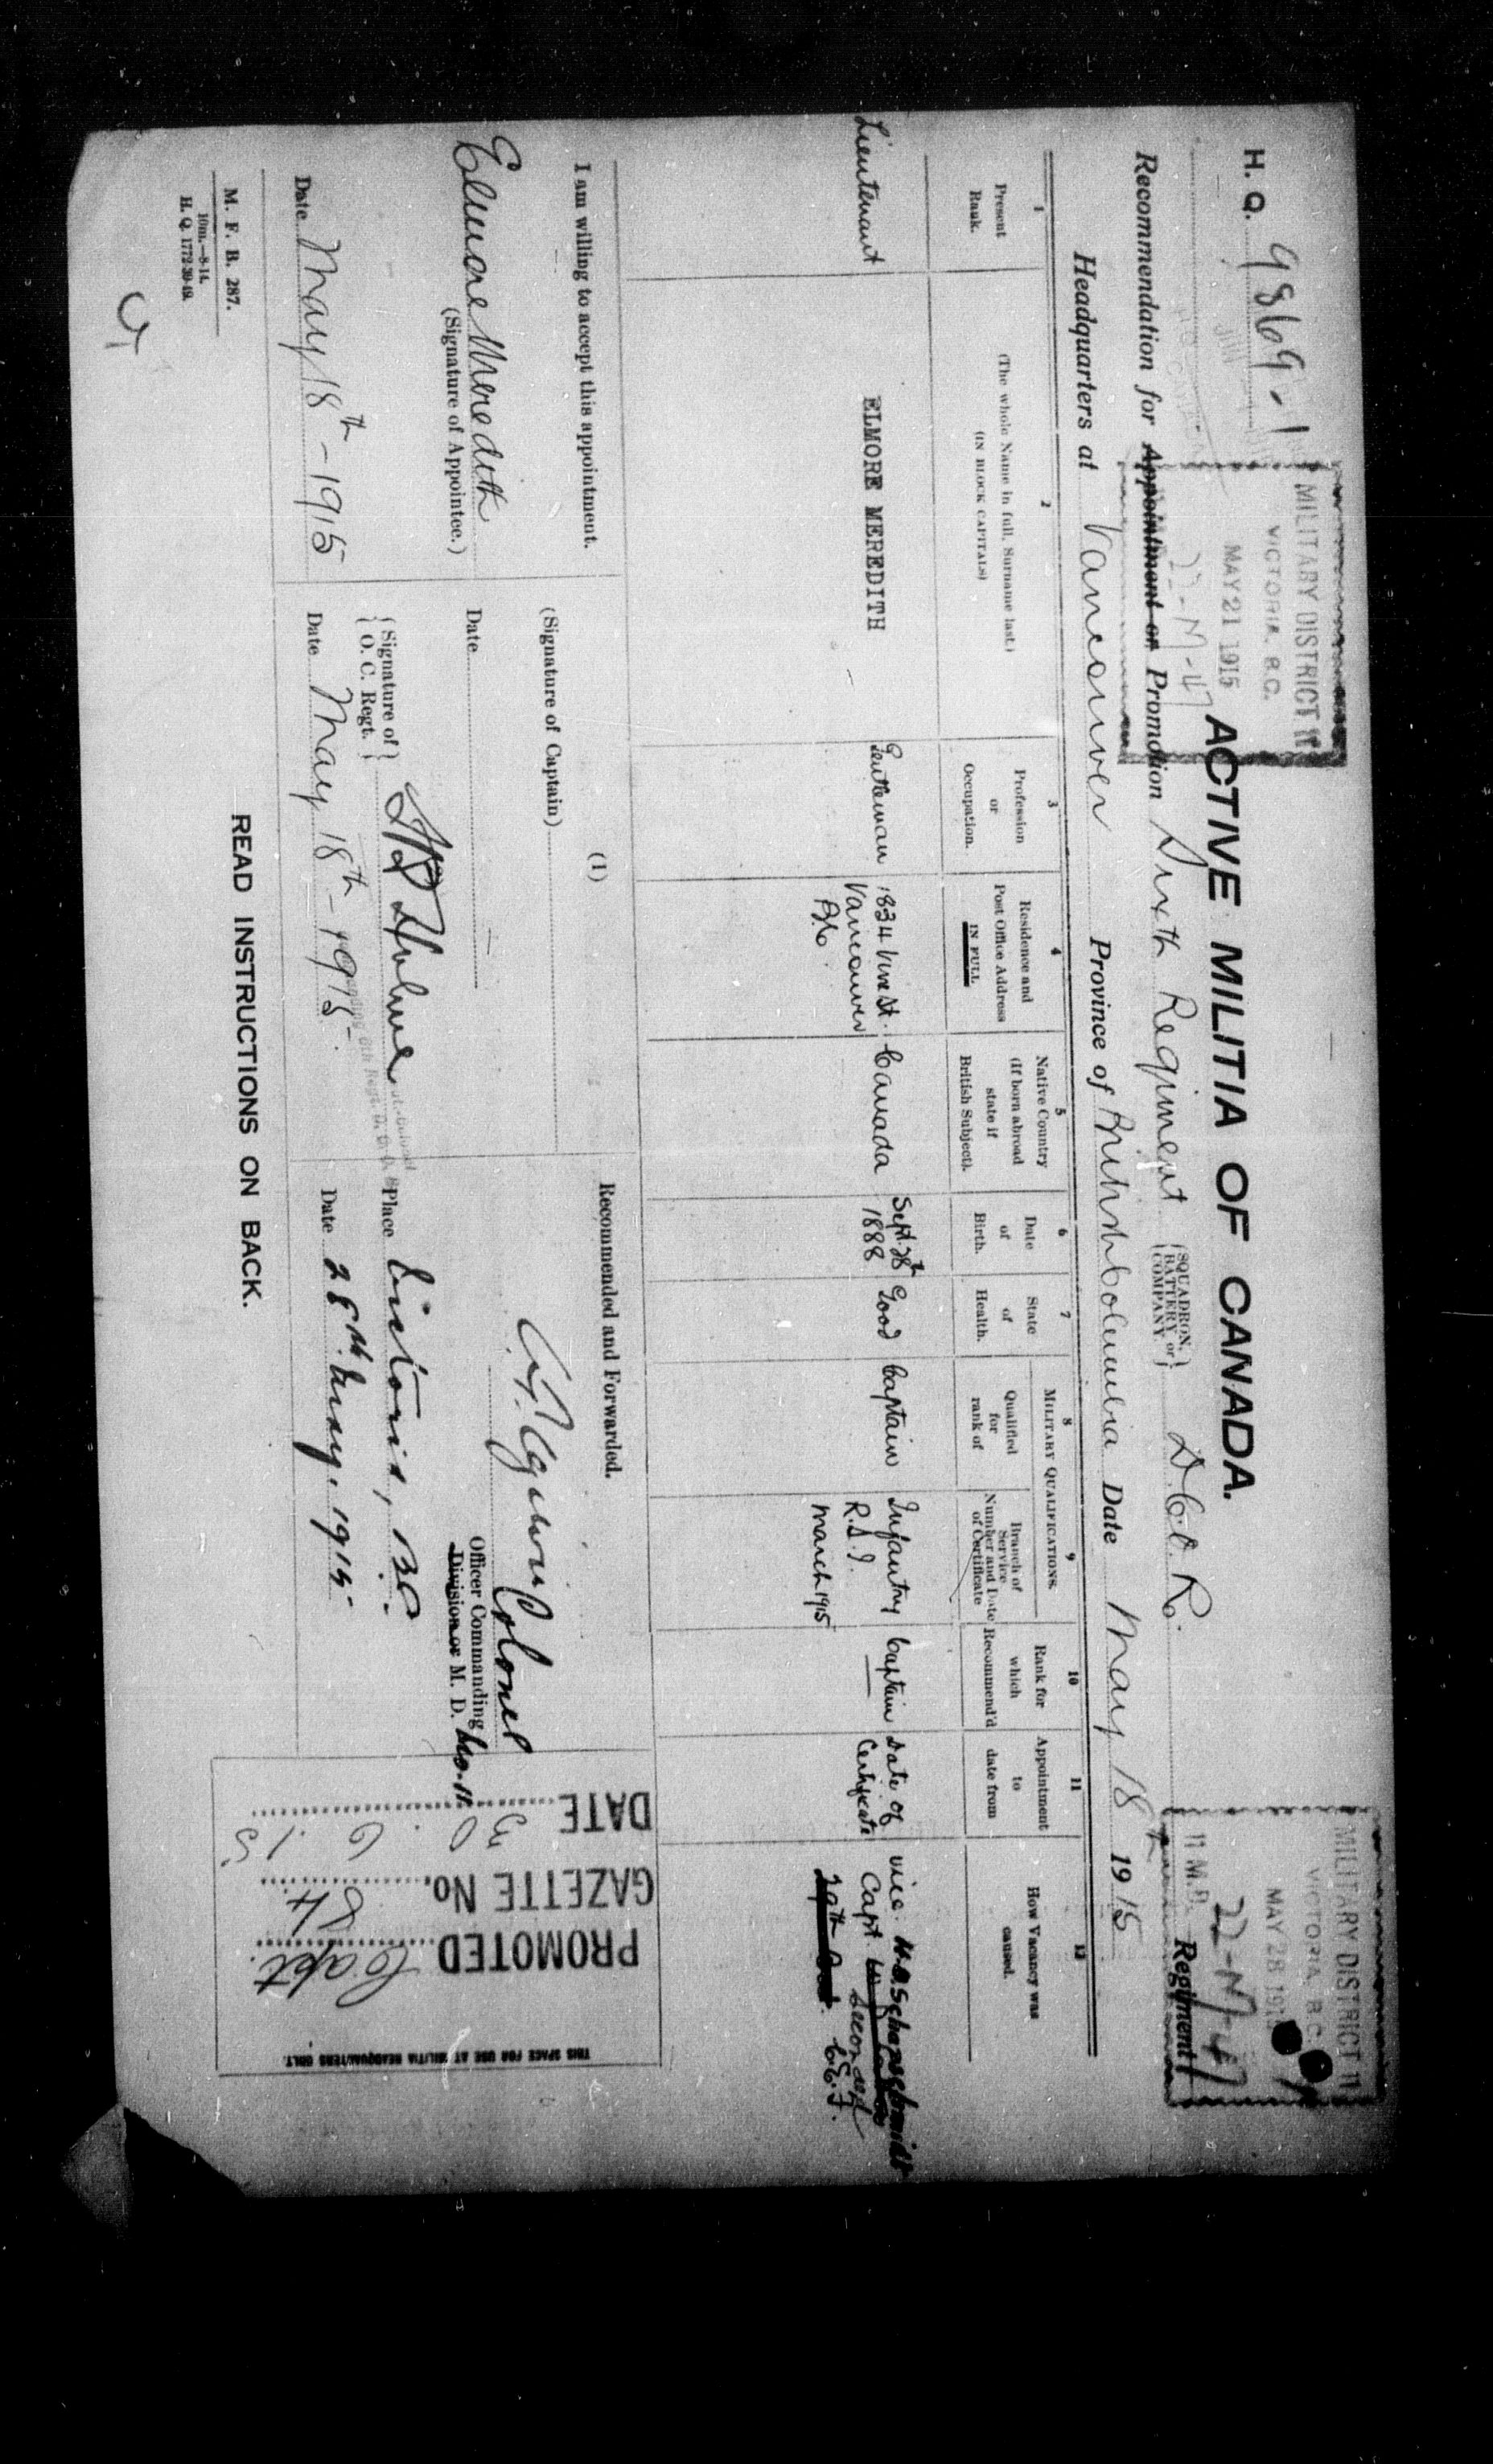 H. Q. 9869-1
MILITARY DISTRICT 11
VICTORIA, B.C.
MAY 21 1915
22-M-47
ACTIVE MILITIA OF CANADA.
MILITARY DISTRICT 11
VICTORIA, B.C.
MAY 28 1915
22-M-47
11 M.D.
Recommendation for Appointment or Promotion Sixth Regiment { SQUADRON, BATTERY or COMPANY } D.C.O.R. Regiment
Headquarters at Vancouver Province of British Columbia Date May 18th 1915
1
Present
Rank.
2
(The whole Name in full, Surname last.)
(IN BLOCK CAPITALS)
3
Profession
or
Occupation.
4
Residence and
Post Office Address
IN FULL
5
Native Country
(If born abroad
state if
British Subject).
6
Date
of
Birth.
7
State
of
Health.
MILITARY QUALIFICATIONS.
8
Qualified
for
rank of
9
Branch of
Service
Number and Date
of Certificate
10
Rank for
which
Recommend'd
11
Appointment
to
date from
12
How Vacancy was
caused.
Lieutenant
ELMORE MEREDITH
Gentleman
1834 Vine St.
Vancouver
B.C.
Canada
Sept. 28th
1888
Good
Captain
Infantry
R.S.I.
March 1915
Captain
Date of
Certificate
vice. H.O. Schopschmidt
Capt.
Seconded
29th C.E.F.
I am willing to accept this appointment.
Elmore Meredith
(Signature of Appointee.)
Date May 18th - 1915
(1)
(Signature of Captain)
Date
{ Signature of
O. C. Regt. }
Date May 18th - 1915-
Recommended and Forwarded.
Colonel
Officer Commanding
Division or M. D. No. 11.
Place Victoria, BC.
Date 28th May, 1915-
THIS SPACE FOR USE AT MILITIA HEADQUARTERS ONLY.
PROMOTED Capt.
GAZETTE No. 84
DATE 6. 15
M. F. B. 287.
10m.—8-14.
H. Q. 1772-39-49.
READ INSTRUCTIONS ON BACK.